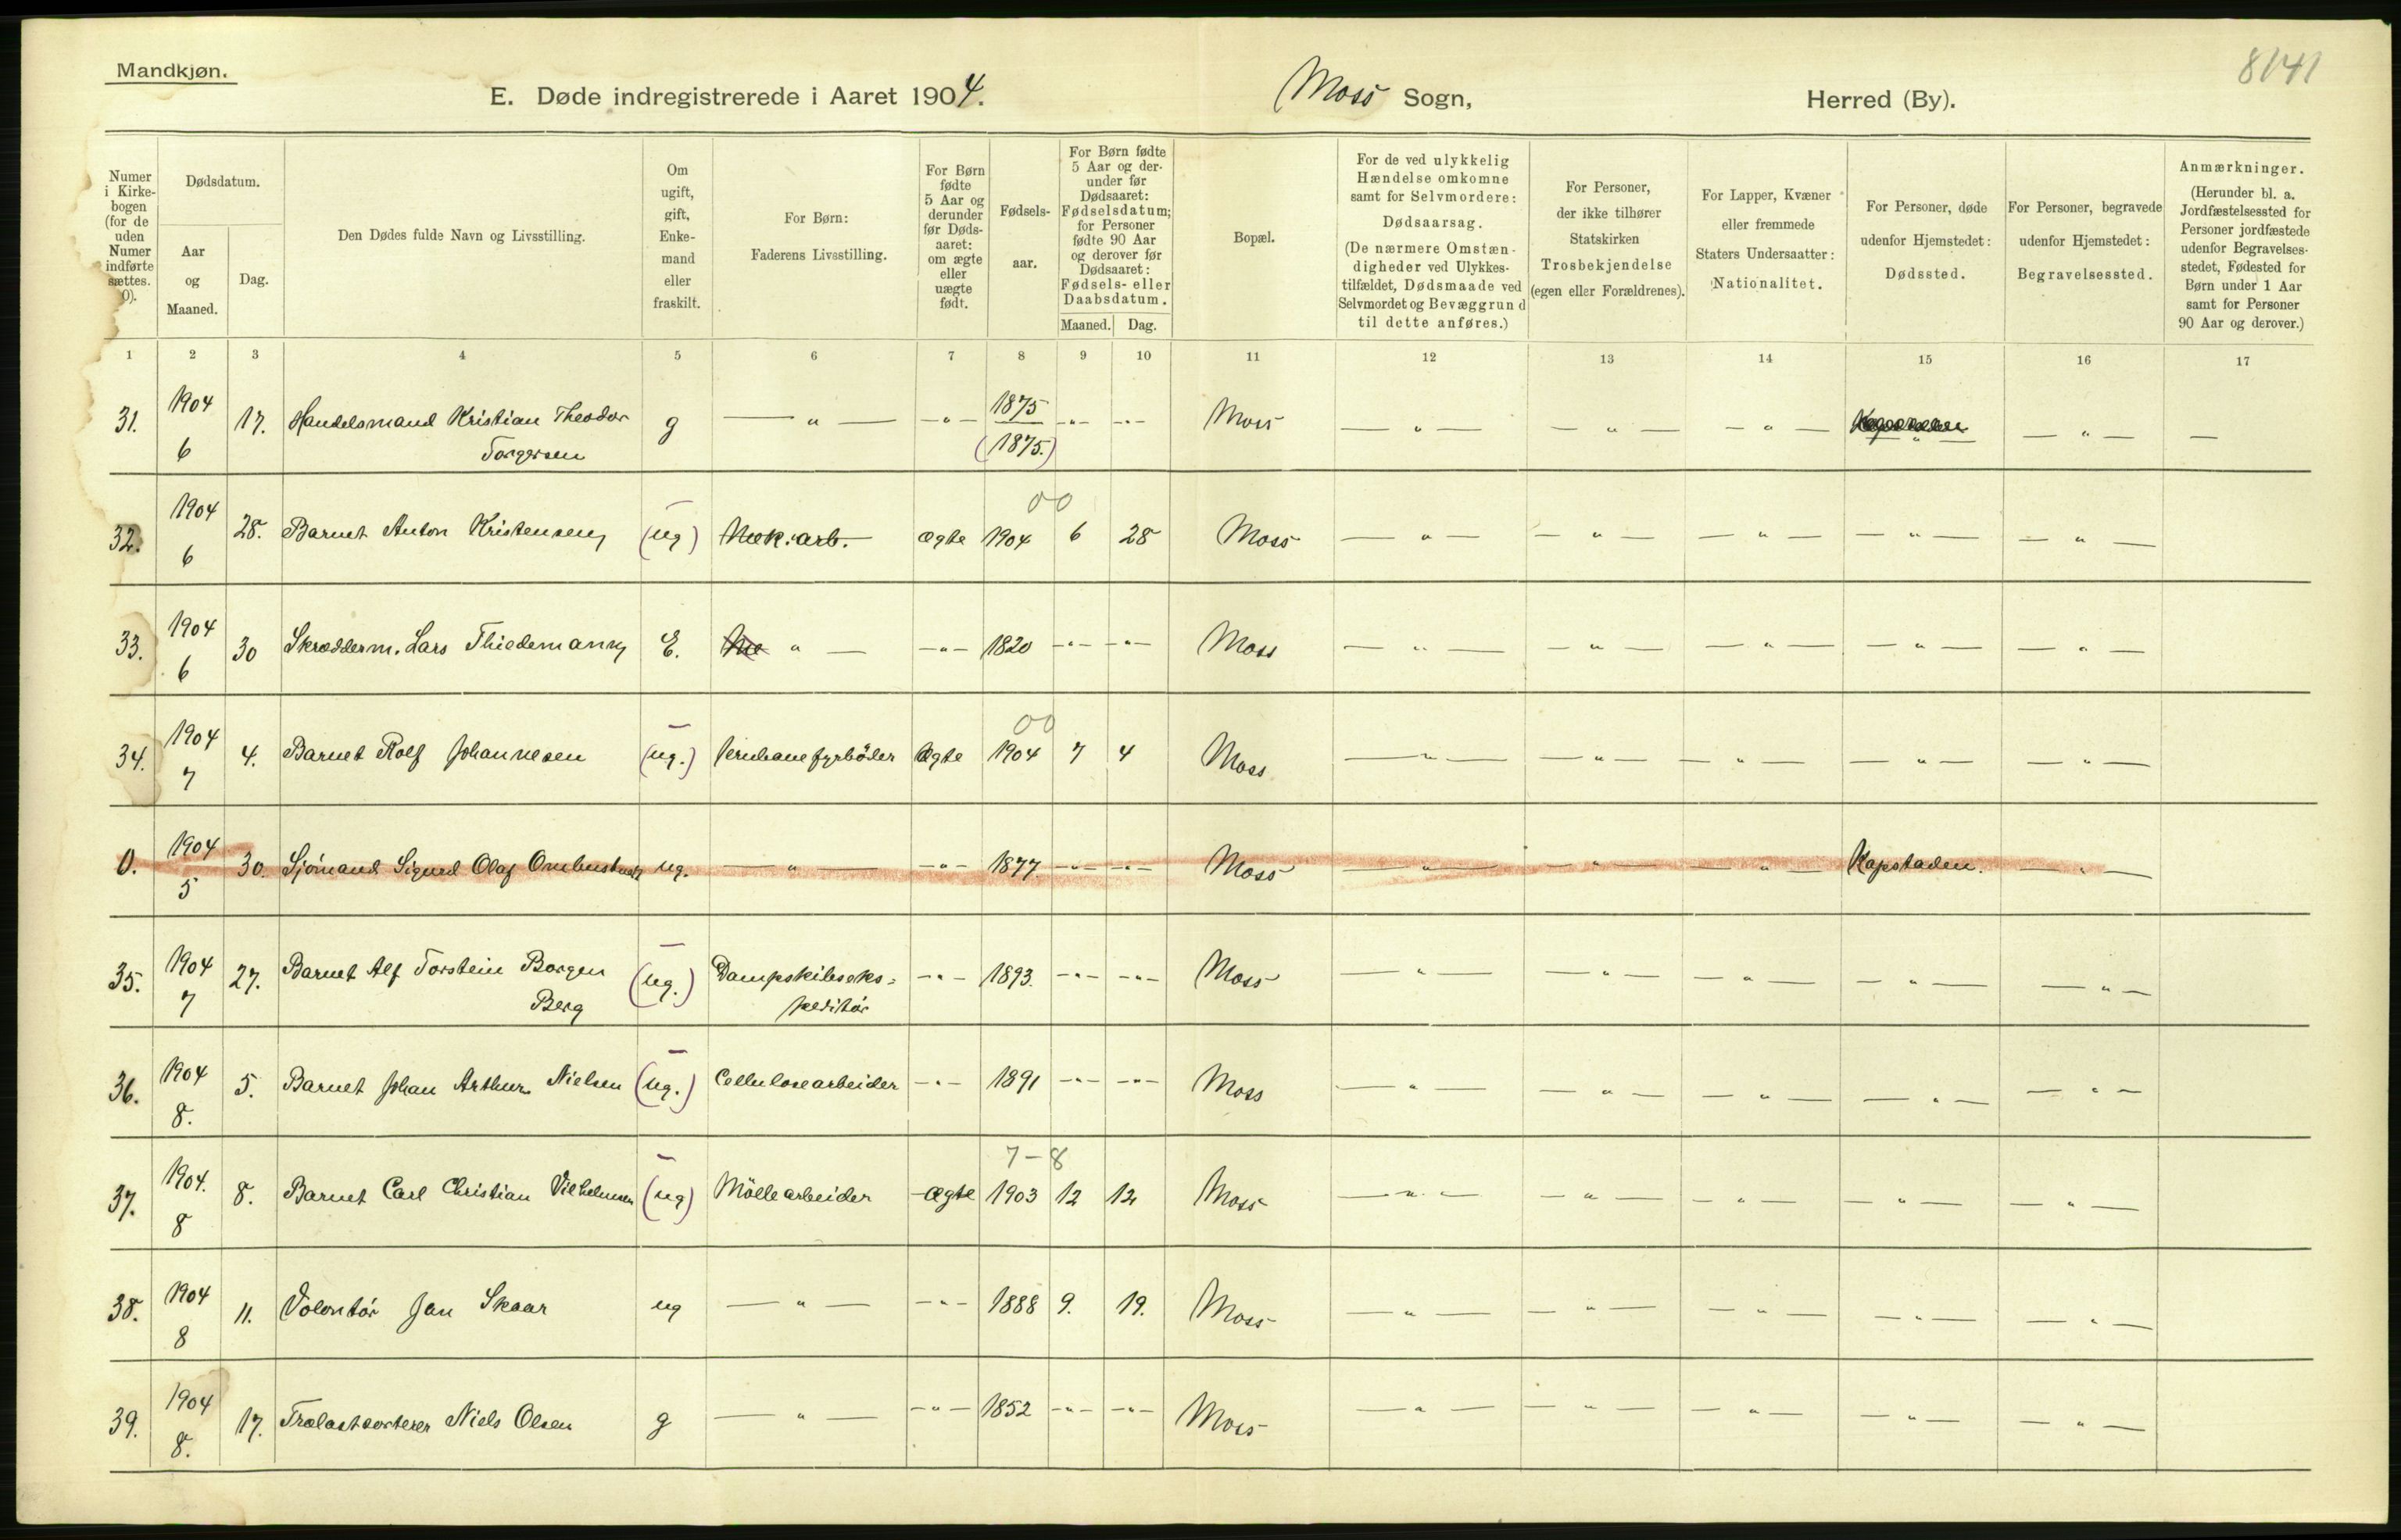 Mandkjøn.
8141
E. Døde indregistrerede i Aaret 1904.
Moss Sogn,
Herred (By).
Numer i Kirkebogen (for de uden Numer indførte sættes. 0).
Dødsdatum.
Aar og Maaned.
Dag.
Den Dødes fulde Navn og Livsstilling.
Om ugift, gift, Enkemand eller fraskilt.
For Børn: Faderens Livsstilling.
For Børn fødte 5 Aar og derunder før Dødsaaret: om ægte eller uægte født.
Fødselsaar.
For Børn fødte 5 Aar og derunder før Dødsaaret: Fødselsdatum; for Personer fødte 90 Aar og derover før Dødsaaret: Fødsels- eller Daabsdatum.
Maaned. Dag.
Bopæl.
For de ved ulykkelig Hændelse omkomne samt for Selvmordere: Dødsaarsag. (De nærmere Omstændigheder ved Ulykkestilfældet, Dødsmaade ved Selvmordet og Bevæggrund til dette anføres.)
For Personer, der ikke tilhører Statskirken Trosbekjendelse (egen eller Forældrenes).
For Lapper, Kvæner eller fremmede Staters Undersaatter: Nationalitet.
For Personer, døde udenfor Hjemstedet: Dødssted.
For Personer, begravede udenfor Hjemstedet: Begravelsessted.
Anmærkninger. (Herunder bl. a. Jordfæstelsessted for Personer jordfæstede udenfor Begravelsesstedet, Fødested for Børn under 1 Aar samt for Personer 90 Aar og derover.)
1 2 3 4 5 6 7 8 9 10 11 12 13 14 15 16 17
31. 1904 6 17. Handelsmand Kristian Theodor Torgersen g — " — — " — 1875 (1875.) — " — — " — Moss — " — — " — — " — — " — — " — —
00
32. 1904 6 28. Barnet Anton Kristensen (ug) Mek. arb. ægte 1904 6 28 Moss — " — — " — — " — — " — — " —
33. 1904 6 30 Skrædderm. Lars Thiedemann E. Me " — — " — 1820 — " — — " — Moss — " — — " — — " — — " — — " —
00
34. 1904 7 4. Barnet Rolf Johannesen (ug.) Jernbanefyrbøder Ægte 1904 7 4 Moss — " — — " — — " — — " — — " —
0. 1904 5 30. Sjømand Sigurd Olaf ug. — " — — " — 1877. — " — — " — Moss — " — — " — — " — Kapstaden. — " —
35. 1904 7 27. Barnet Alf Torstein Borgen Berg (ug.) Dampskibseks= peditør — " — 1893. — " — — " — Moss — " — — " — — " — — " — — " —
36. 1904 8. 5. Barnet Johan Arthur Nielsen (ug.) Cellulosearbeider — " — 1891 — " — — " — Moss — " — — " — — " — — " — — " —
7-8
37. 1904. 8 8. Barnet Carl Christian Vilhelmsen (ug) Møllearbeider ægte 1903 12 12 Moss — " — — " — — " — — " — — " —
38. 1904 8 11. Volontør Jan Skaar ug — " — — " — 1888 9. 19. Moss — " — — " — — " — — " — — " —
39. 1904 8. 17. Trælastsorterer Niels Olsen g — " — — " — 1852 — " — — " — Moss — " — — " — — " — — " — — " —